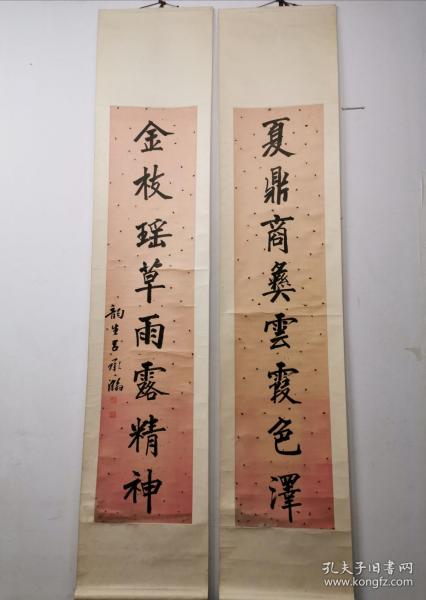 夏鼎商彝雲霞色澤
金枝瑶草雨露精神
韵生吕承瀚
孔夫子旧书网
www.kongfz.com